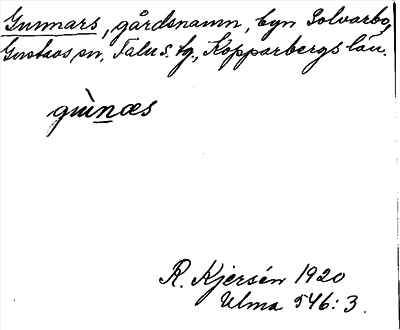 Gunnars, gårdsnamn, byn Solvarbo,
Gustavs sn, Falu s. tg., Kopparbergs län.
gùnæs
R. Kjersén 1920
Ulma 546:3.